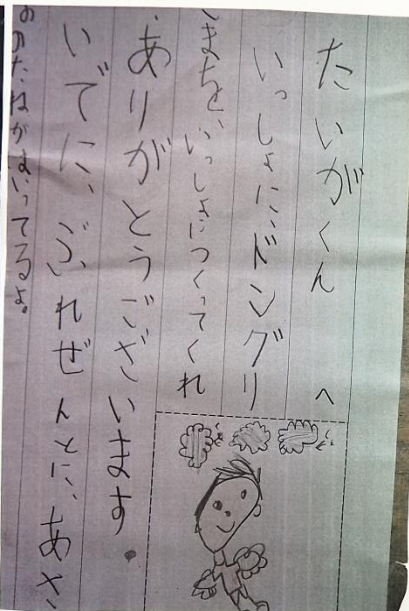 たいがくんへ
いっしょに、ドングリ
こまちを、いっしょにつくってくれ
ありがとうございます。
いでに、ぷれぜんとに、あさ
のたねがはいってるよ。